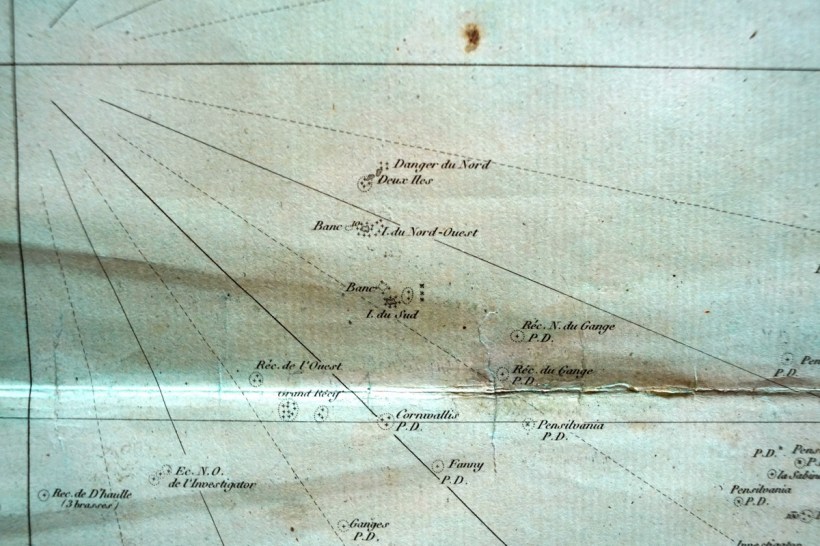 Danger du Nord
Deux Iles
Banc
I. du Nord-Ouest
Banc
I. du Sud
Réc. N. du Gange
P.D.
Réc. de l'Ouest
Réc. du Gange
P.D.
Pen
P.D.
Grand Récif
Cornwallis
P.D.
Pensilvania
P.D.
P.D.
Pens
Fanny
P.D.
Ec. N.O.
de l'Investigator
la Sabin
Rec. de D'haulle
(3 brasses)
Pensilvania
P.D.
Ganges
P.D.
Investigator